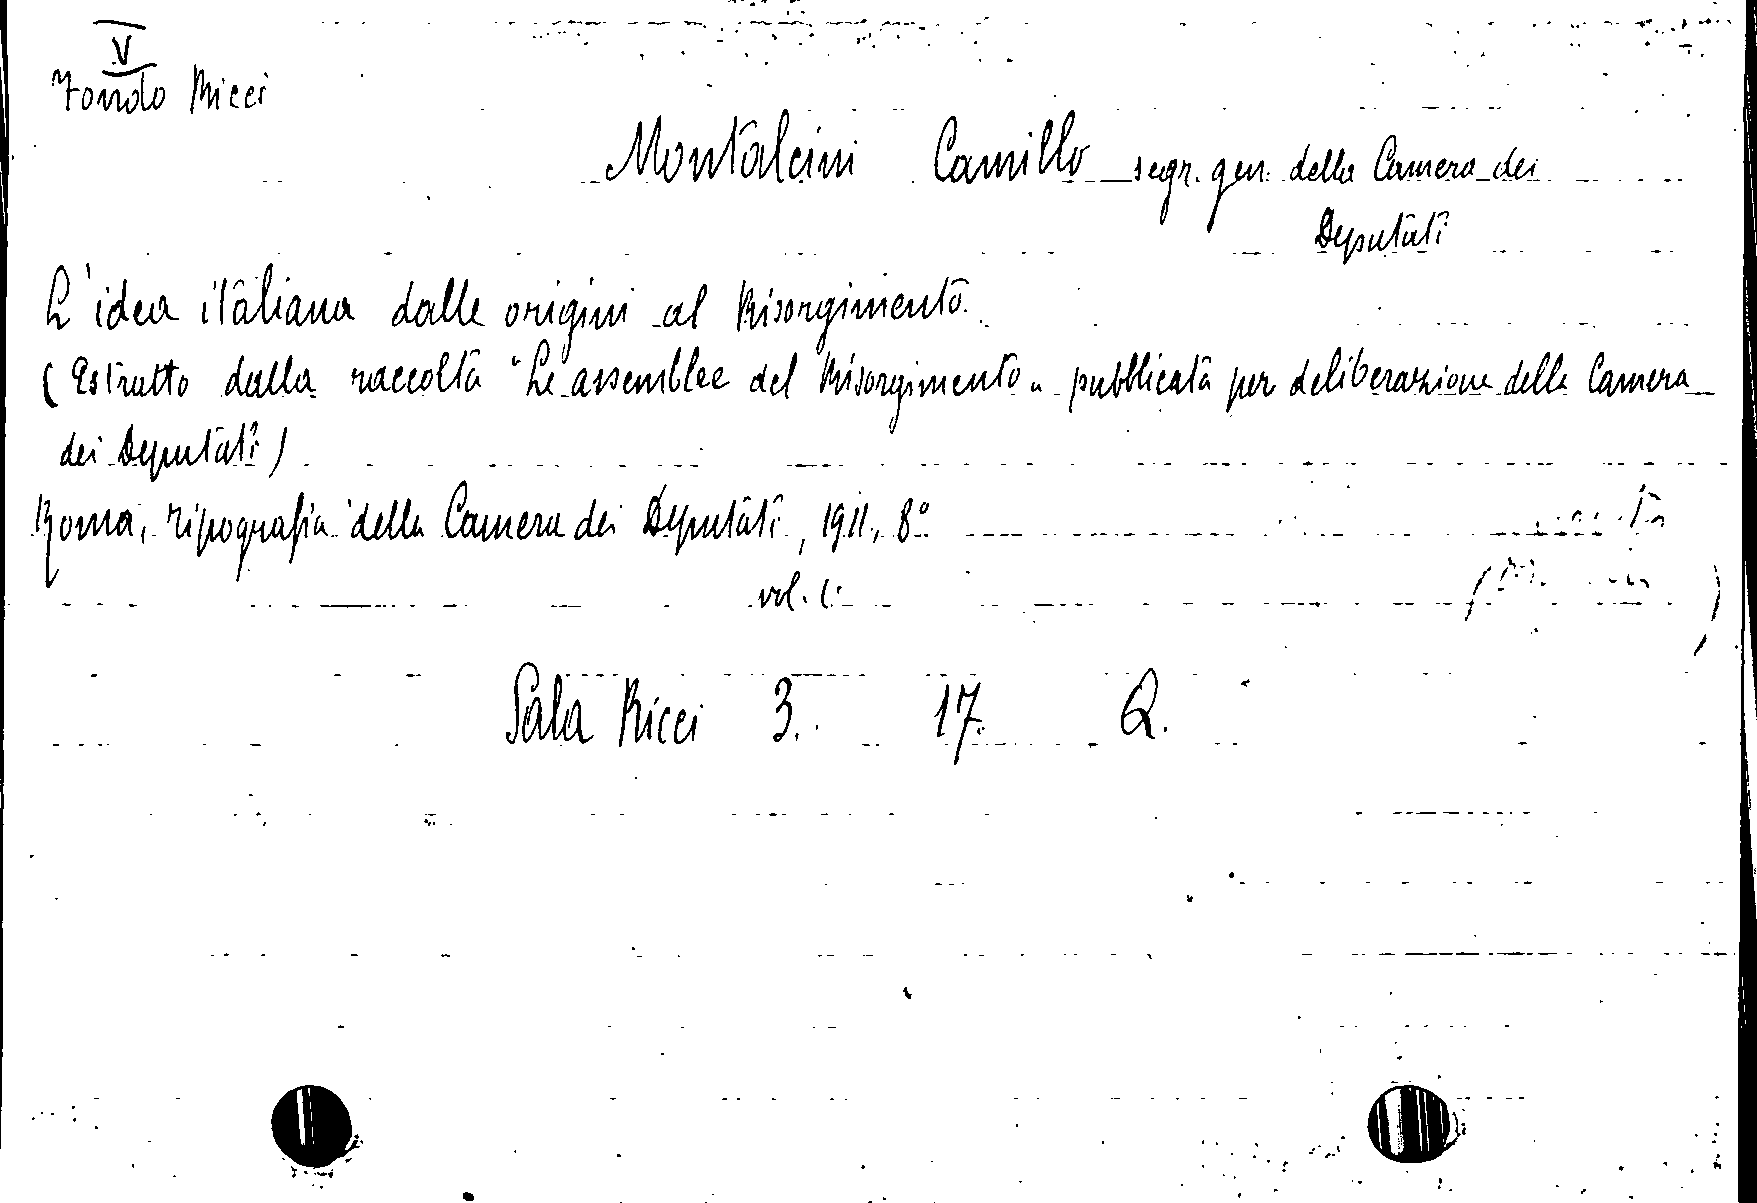 V
Fondo Ricci
Montalcini Camillo segr. gen. della Camera dei
Deputati
L'idea italiana dalle origini al Risorgimento.
(Estratto dalla raccolta "Le assemblee del Risorgimento" pubblicata per deliberazione della Camera
dei Deputati)
Roma, Tipografia della Camera dei Deputati, 1911, 8°
vol. 1.
Sala Ricci 3. 17. Q.